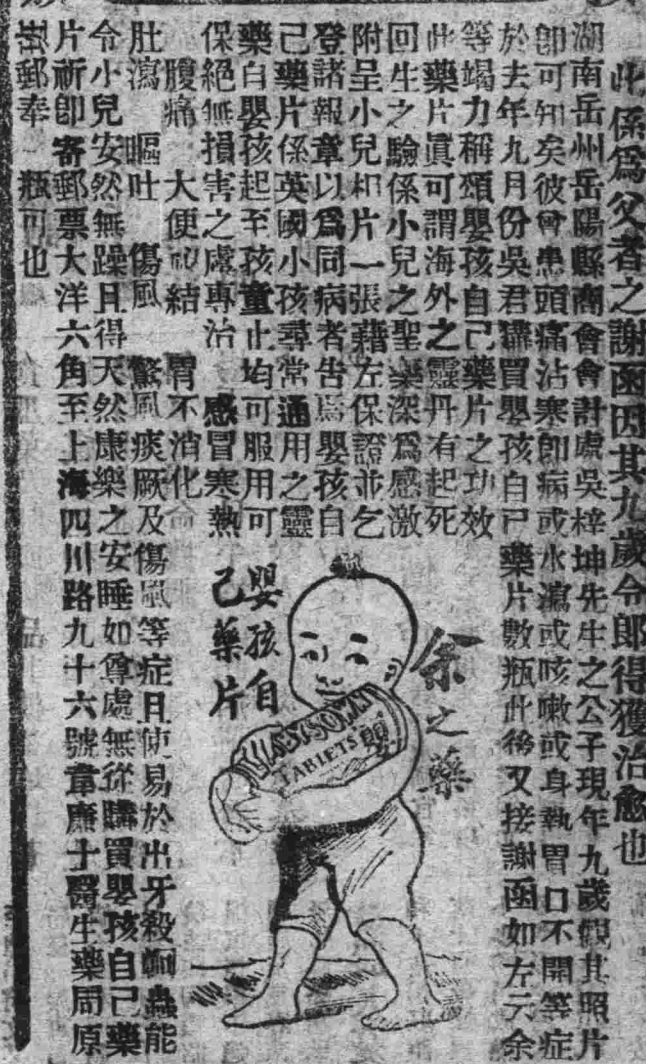 此係爲父者之謝函因其九歲令郎得獲治愈也
湖南岳州岳陽縣商會會計處吳梓坤先生之公子現年九歲觀其照片
卽可知矣彼曾患頭痛沾寒卽病或水瀉或咳嗽或身熱胃口不開等症
於去年九月份吳君購買嬰孩自己藥片數瓶此後又接謝函如左云余
等竭力稱頌嬰孩自己藥片之功效
此藥片眞可謂海外之靈丹有起死
回生之驗係小兒之聖藥深爲感激
附呈小兒相片一張藉左保證並乞
登諸報章以爲同病者告焉嬰孩自
己藥片係英國小孩尋常通用之靈
藥自嬰孩起至孩童止均可服用可
保絕無損害之處專治 感冒寒熱
腹痛 大便祕結 胃不消化
肚瀉 嘔吐 傷風 驚風痰厥及傷風等症且使易於出牙殺蟲能
令小兒安然無躁且得天然康樂之安睡如尊處無從購買嬰孩自己藥
片祈卽寄郵票大洋六角至上海四川路九十六號韋廉士醫生藥局原
郵奉 瓶可也
余之藥
嬰孩自
己藥片
BABYSOWN
TABLETS